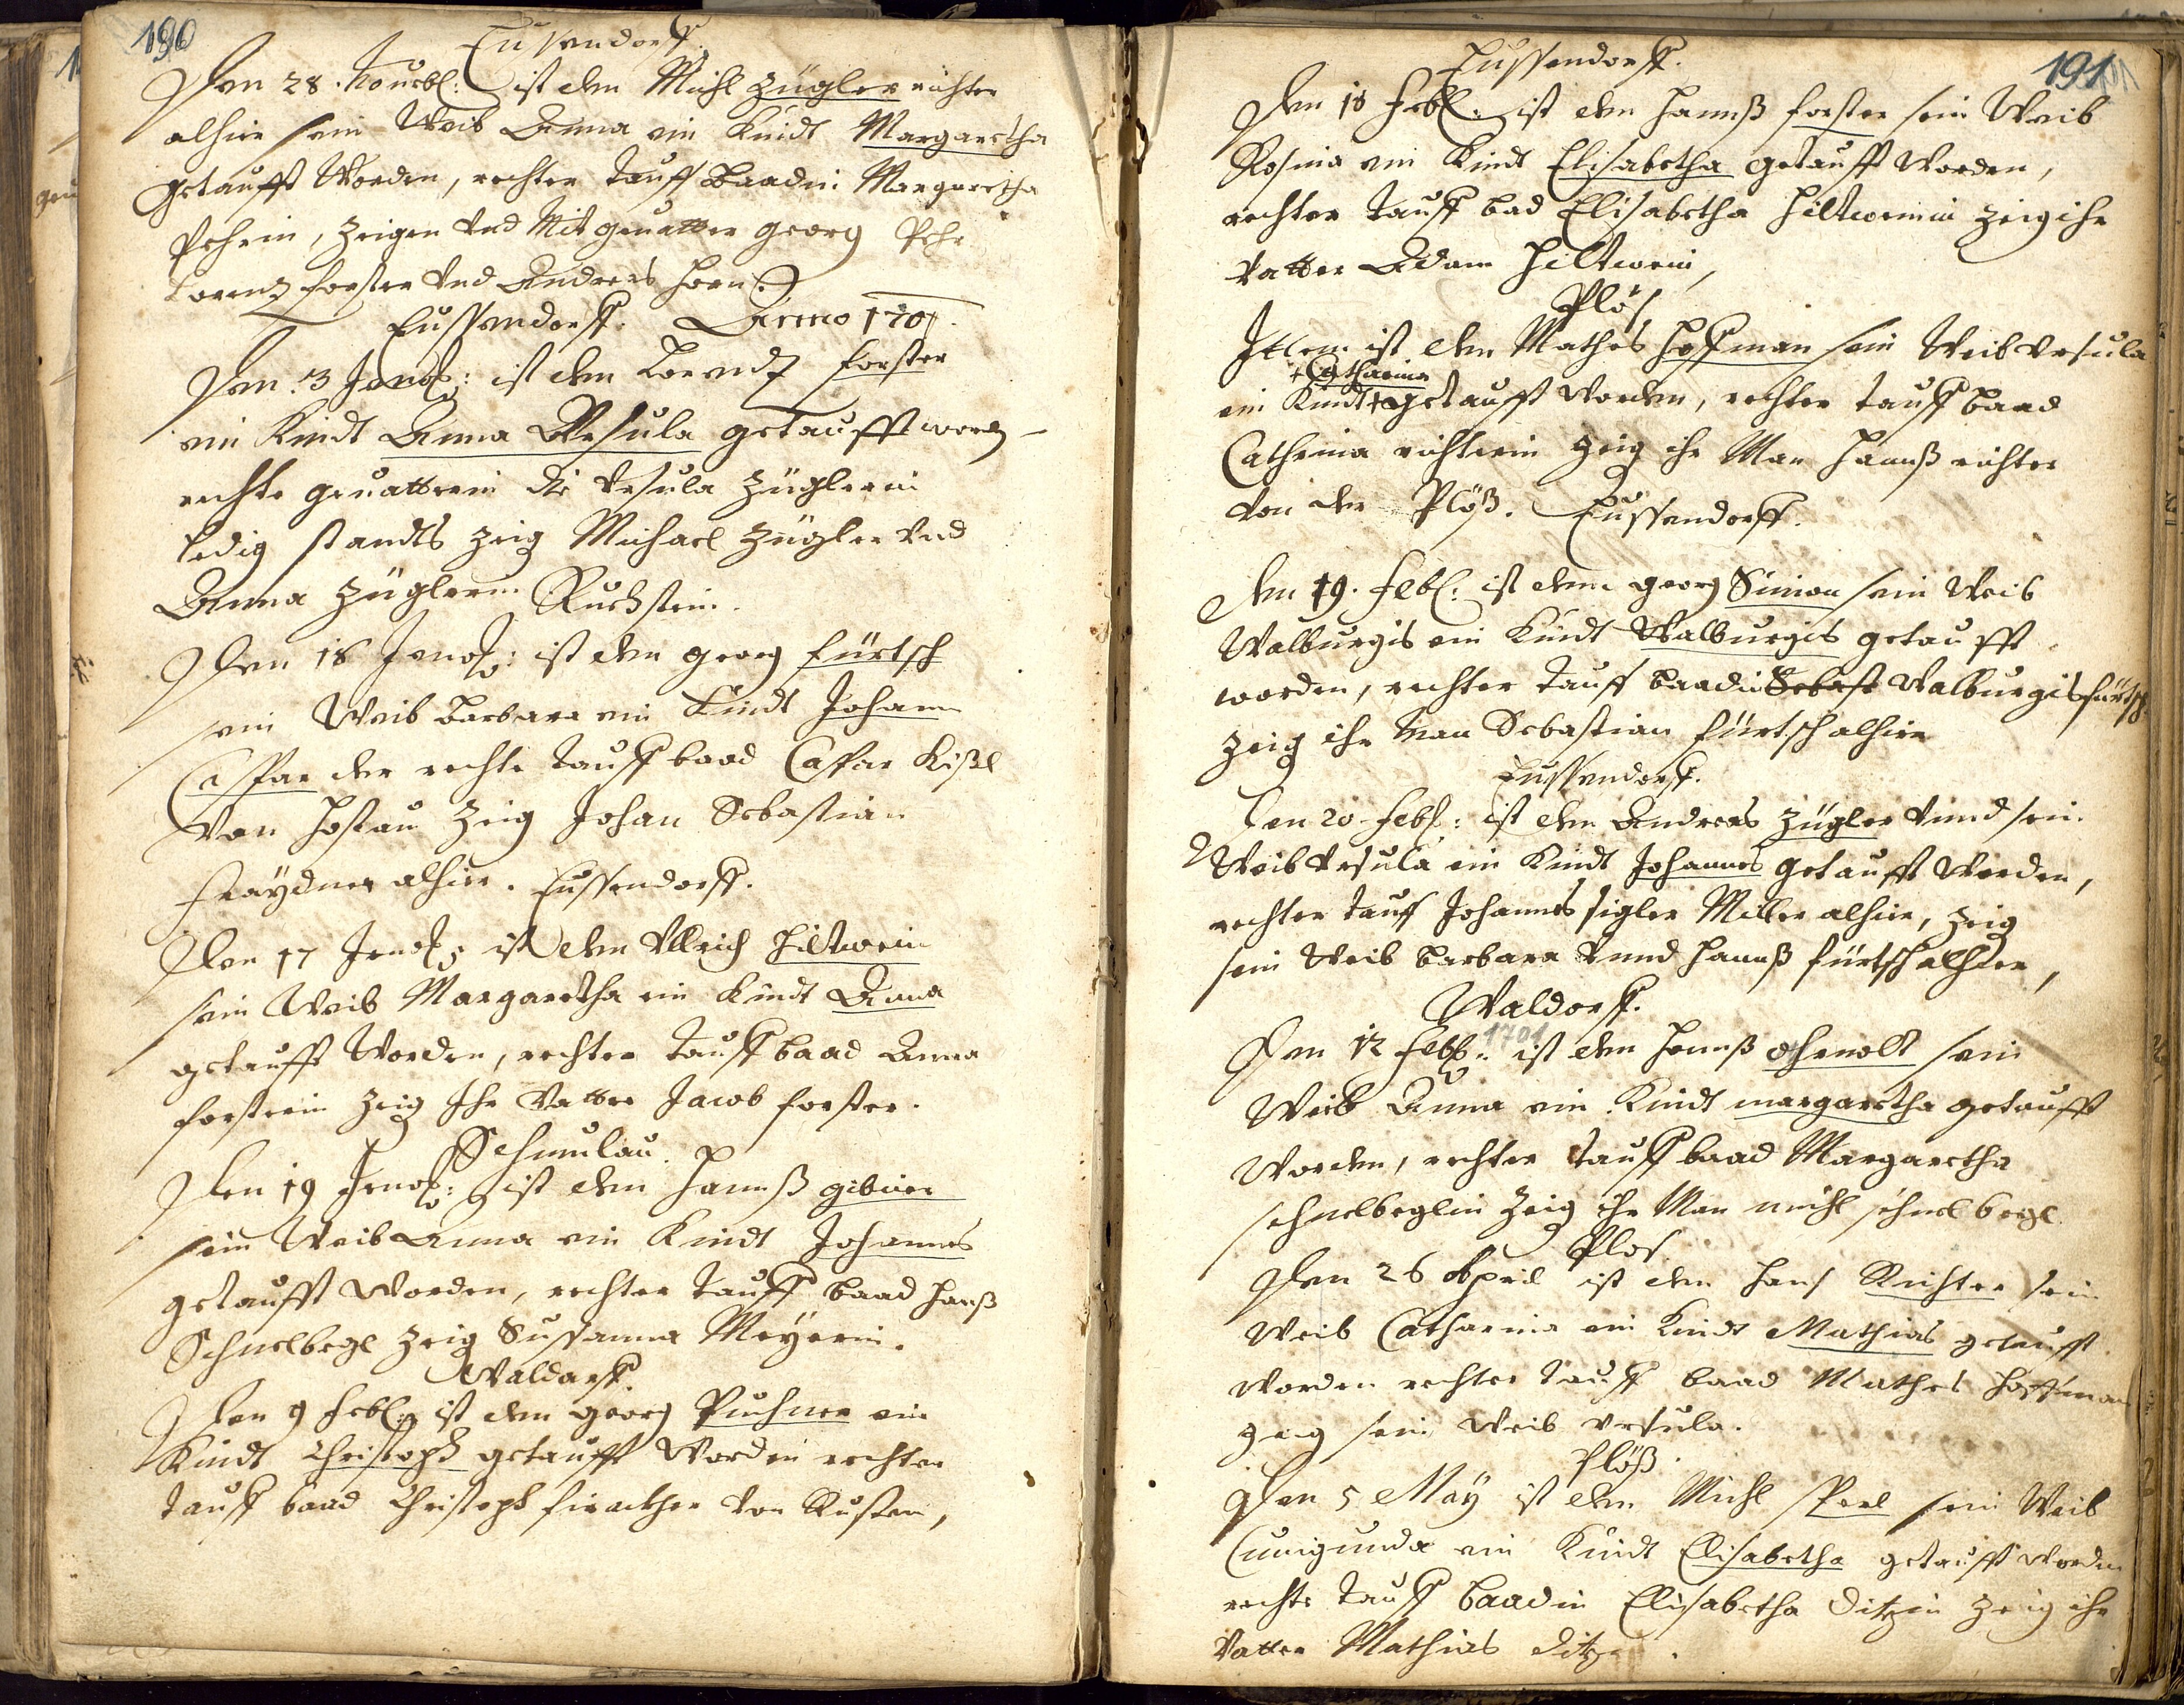 190
Eussendorff
Den 28. Nouebl: ist dem Michl Zügler richter
alhier sein Weib Anna ein Kindt Margaretha
getaufft Worden, rechter tauff Baadin Margaretha
Pehrin, Zeigen Vnd Mit geuatter Georg Pehr
Lorenz forster Vnd Andreas Horn
Eussendorff. Anno 1701.
Den 3 Jenoḝ: ist dem Lorendz forster
ein Kindt Anna Vrsula getaufft word
rechte geuatterin die Vrsula Züglerin
ledig standts Zeig Michael Zügler Vnd
Anna Züglerin
Ruckstein.
Den 18 Jeno: ist dem Georg fürtsch
sein Weib Barbara ein Kindt Johann
Caspar der rechte tauff baad Caspar Kißl
Von Hostau Zeig Johan Sebastian
Fraÿdner alhier. Eussendorff.
Den 17 Jeno: ist dem Vllrich Hiltwein
sein Weib Margaretha ein Kindt Anna
getaufft Worden, rechter tauff baad Anna
forsterin Zeig Ihr Vatter Jacob forster.
Schmulau.
Den 19 Jeno: ist dem Hannß gibner
sein Weib Anna ein Kindt Johannes
getaufft Worden, rechter tauff baad Hanß
Schnelbegl Zeig Sussanna Meÿerin.
Waldorff.
Den 9 Febl: ist dem Georg Puchner ein
Kindt Christoph getaufft Worden rechter
tauff baad Christoph von Rusten,
191
Eussendorff.
Den 18 Febl: ist dem Hannß forster sein Weib
Rosina ein Kindt Elisabetha getaufft Worden,
rechter tauff bad Elisabetha Hiltweinin Zeig ihr
Vatter Adam Hiltwein,
Plös
Ittem ist dem Mathes Hoffman sein Weib Vrsula
+ Catharina
ein Kindt + getaufft Worden, rechter tauff baad
Cathrina richterin Zeig ihr Man Hannß richter
Von der Plöß. Eussendorff.
Den 19. Febl: ist dem Georg Simon sein Weib
Walburgis ein Kindt Walburgis getaufft
worden, rechter tauff baadin Sebast Walburgis fürtsch.
Zeig ihr Man Sebastian fürtsch alhier
Eussendorff.
Den 20 Febl: ist dem Andreas Zügler Vnnd sein
Weib Vrsula ein Kindt Johannes getaufft Worden,
rechter tauff Johannes sigler Miller alhier, Zeig
sein Weib Barbara Vnnd Hannß fürtsch alhier,
Waldorff.
1701
Den 12 Febl: ist dem Hannß sein
Weib Anna ein Kindt margaretha getaufft
Worden, rechter tauff baad Margaretha
schnelbeglin Zeig ihr Man michl schnelbegl
Plos
Den 26 April ist dem Hans Richter sein
Weib Catharina ein Kindt Mathias getaufft
Worden rechter tauff baad Mathes Hoffman
Zeig sein Weib Vrsula.
Plöß.
Den 5 Maÿ ist dem Michl Perl sein Weib
Cunigunda ein Kindt Elisabetha getaufft Worden
rechte tauff baadin Elisabetha Ditzin Zeig ihr
Vatter Mathias Ditz